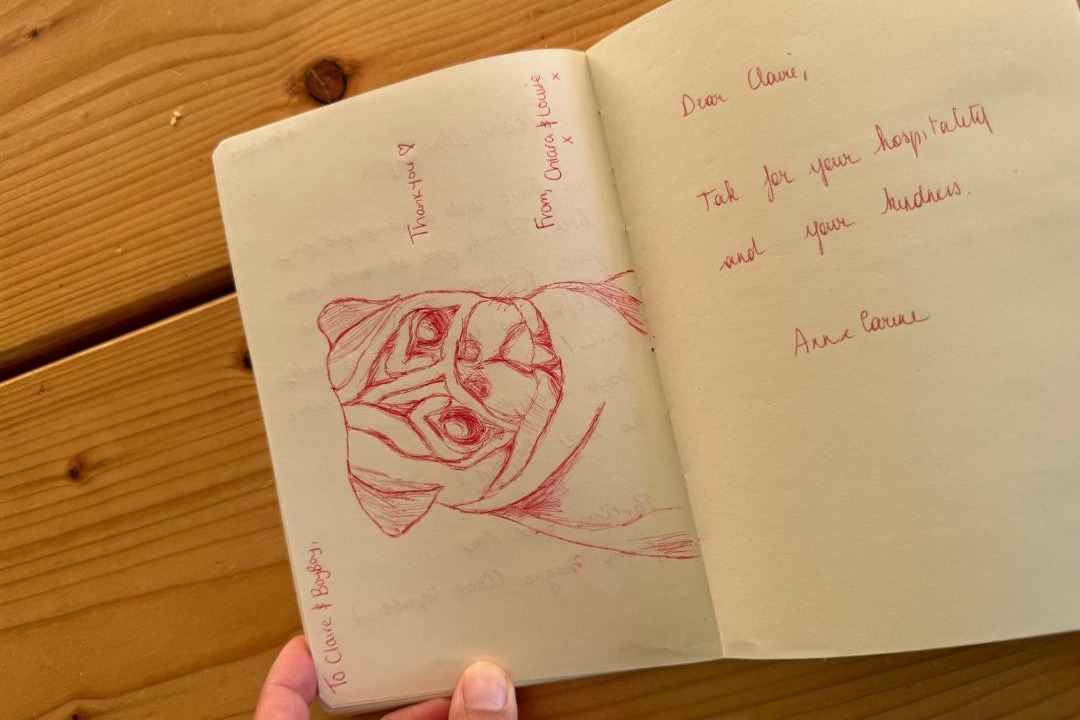 To Claire & BoyBoy,
Thank you
From, Chiara & Louise
x x
Dear Claire,
Tak for your hospitality
and your kindness.
Anne Carine